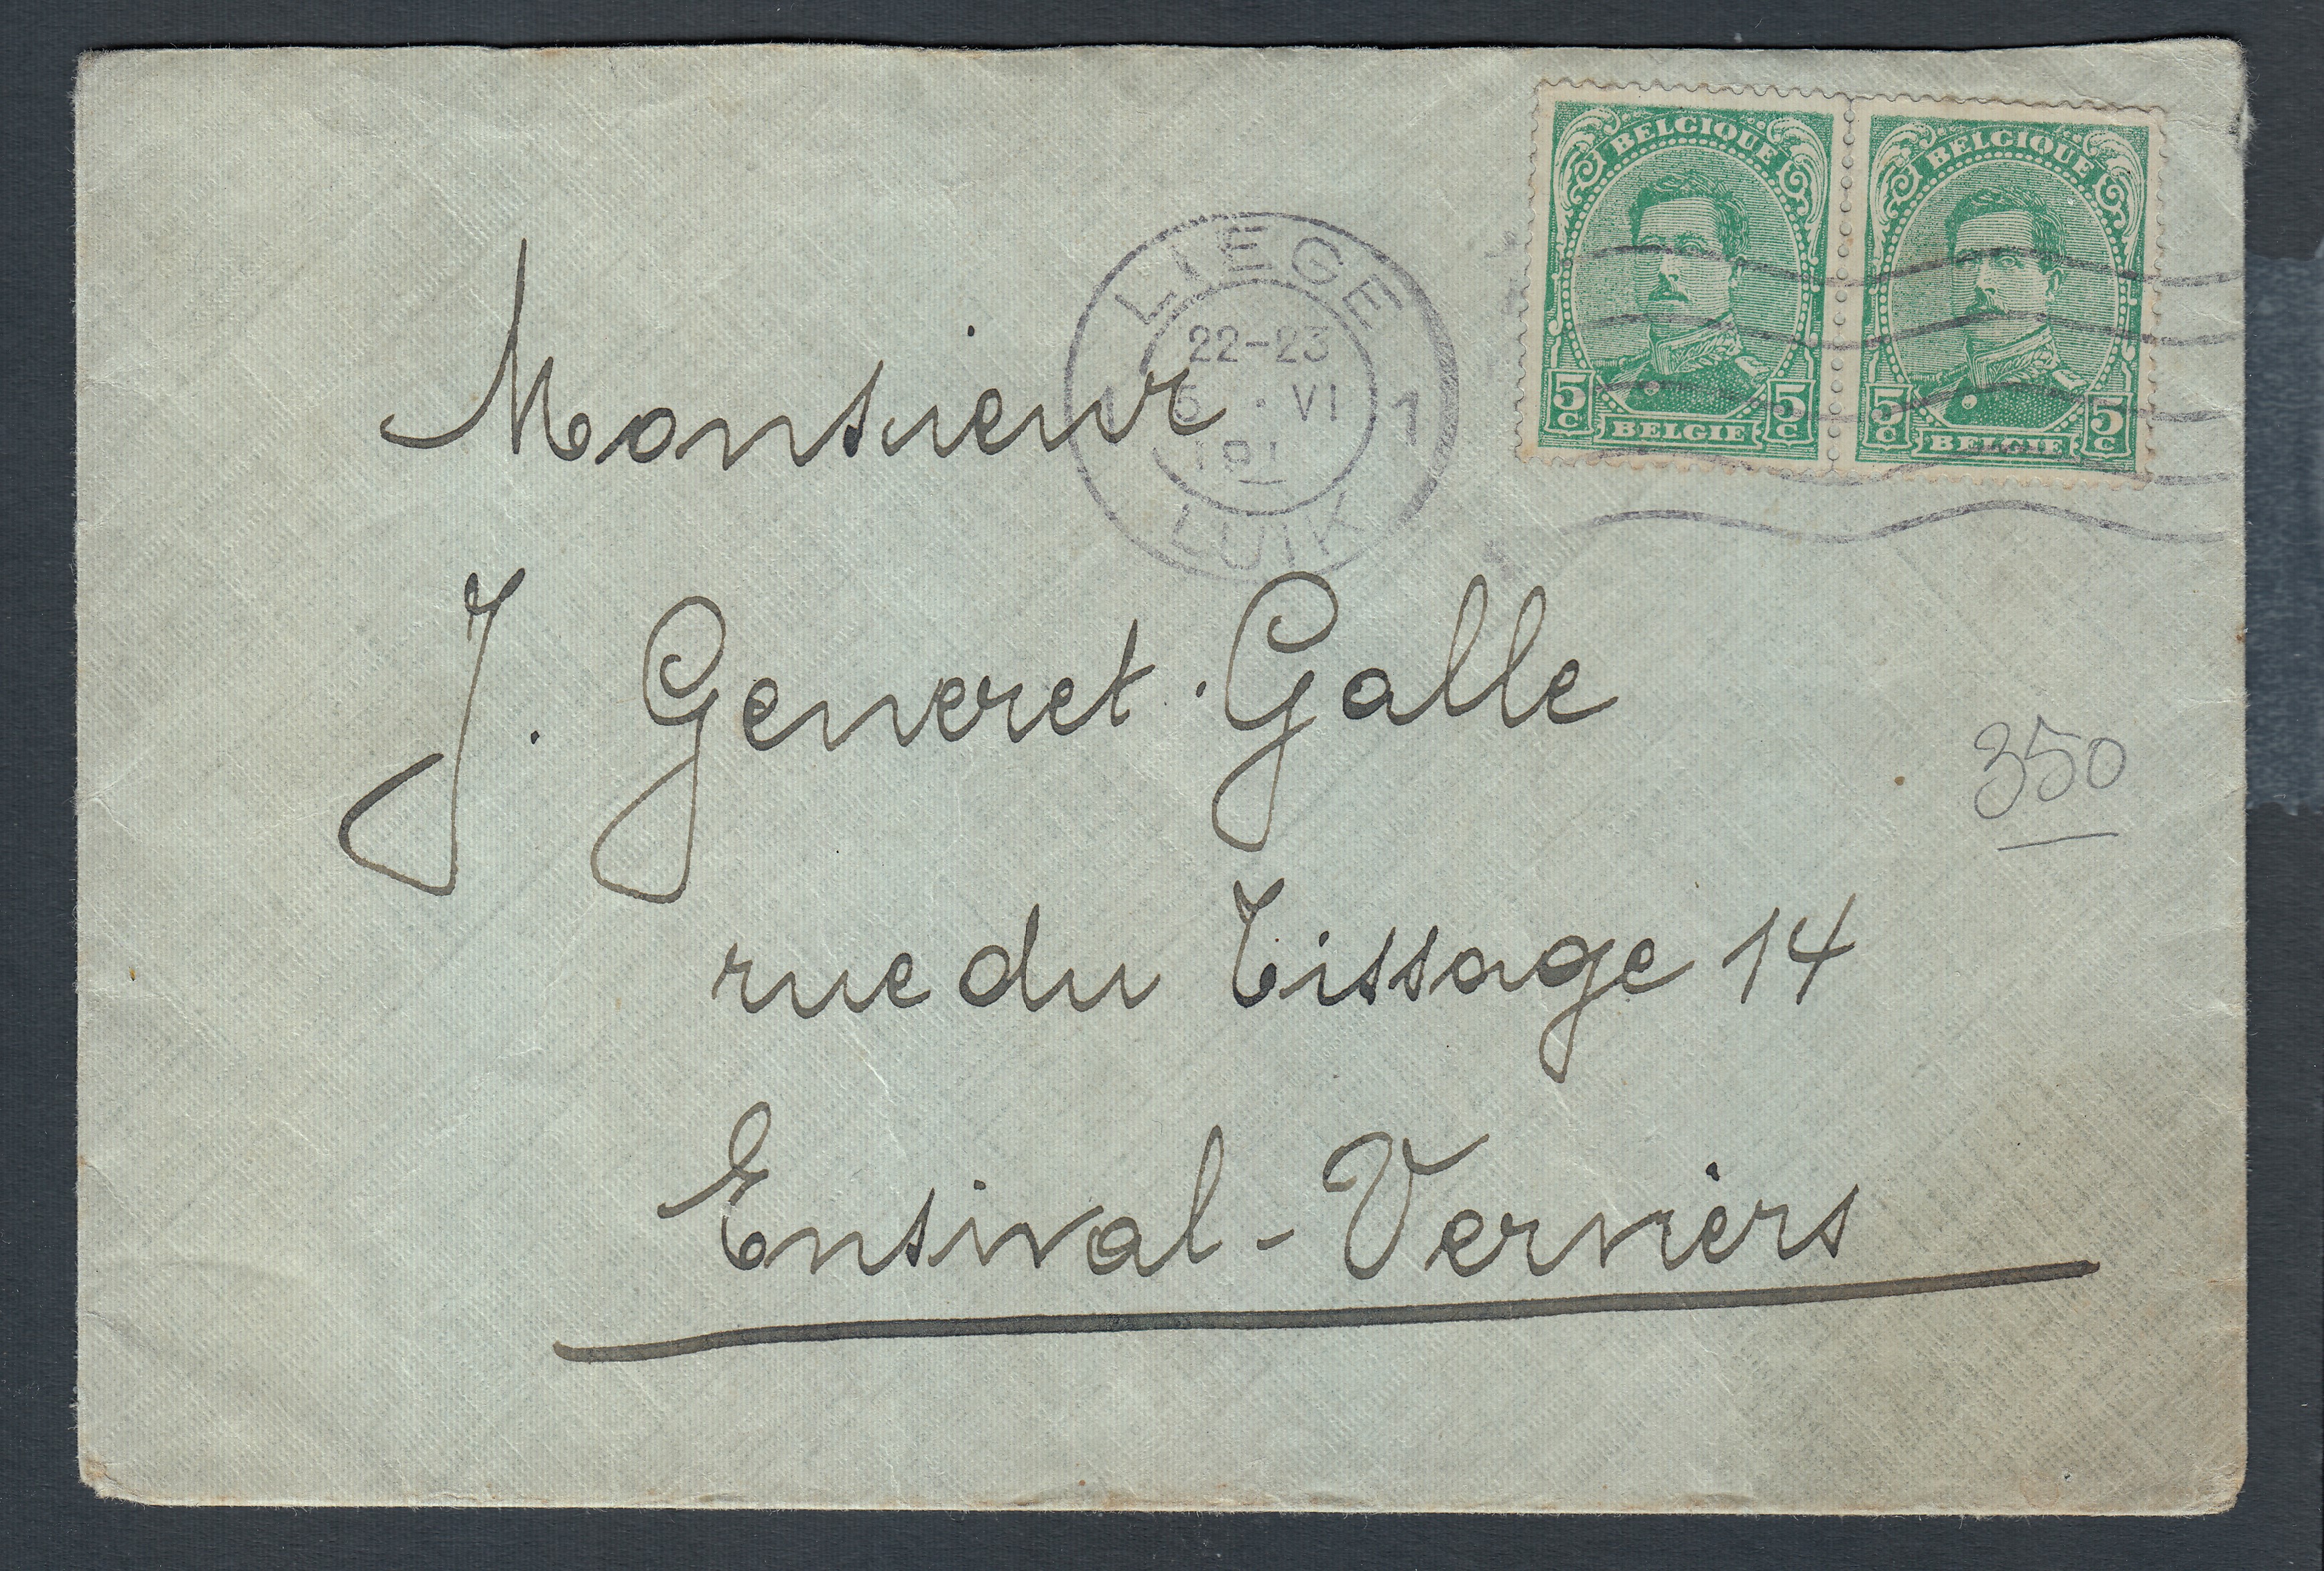 BELGIQUE BELGIQUE
5 C BELGIE 5 C 5 C BELGIE 5 C
LIEGE
22-23
1 5 . VI 1
LUIK
Monsieur
J. Generet-Galle
350
rue du Tissage 14
Ensival-Verviers